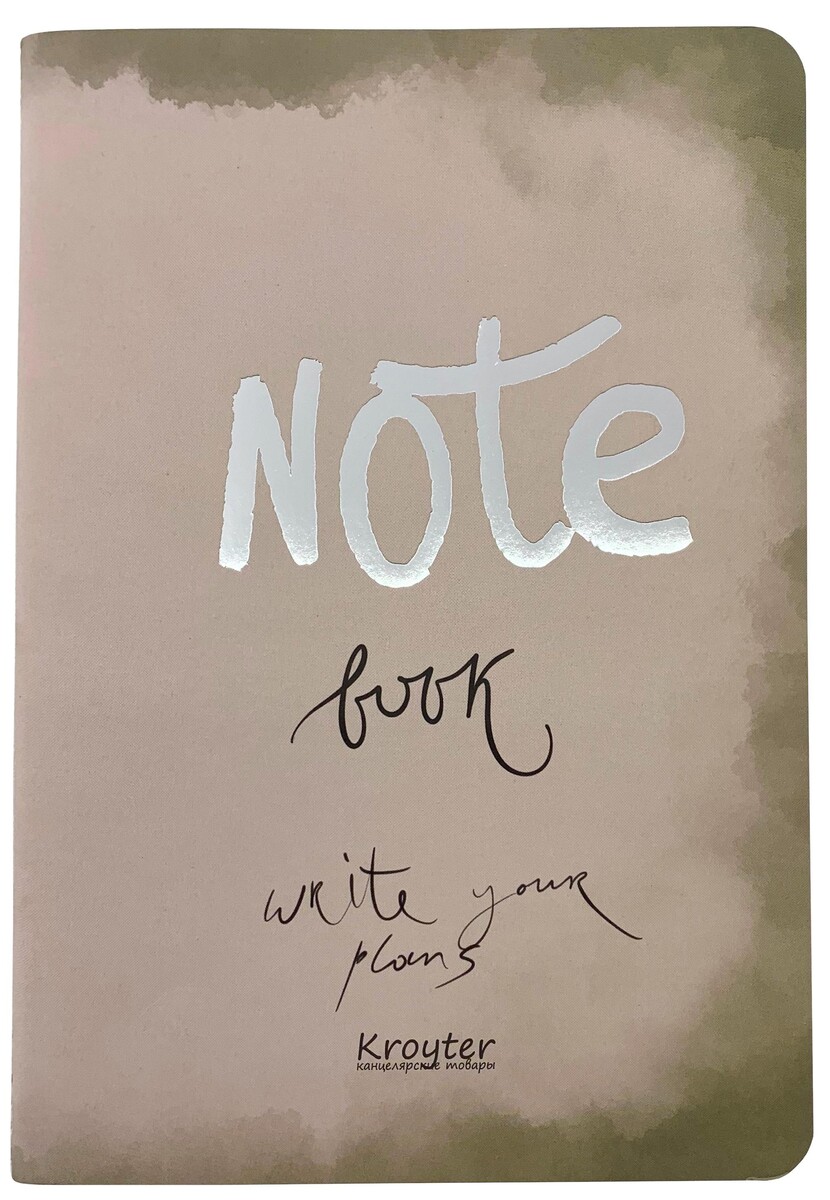 Note
book
write your
plans
Kroyter
канцелярские товары